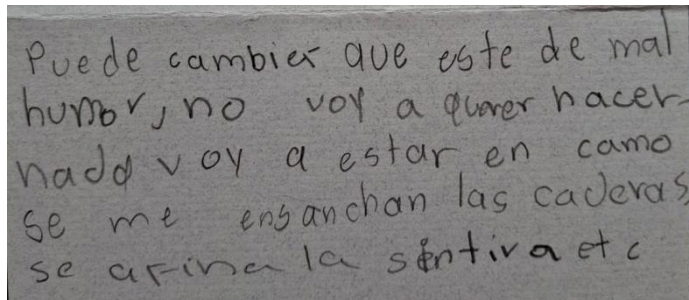 Puede cambier que este de mal
humor, no voy a querer hacer
nada voy a estar en camo
se me ensanchan las caderas
se afina la sintira etc